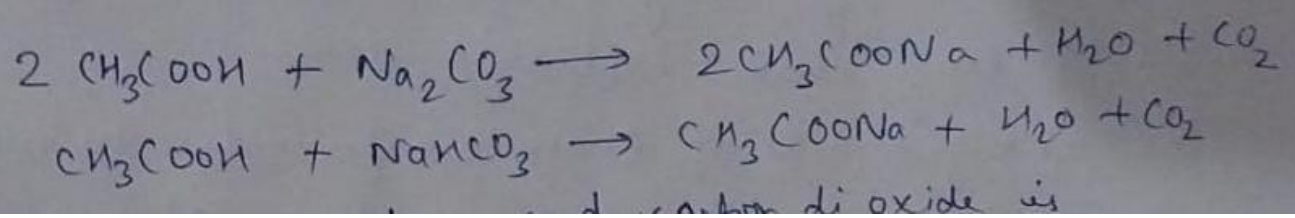 2 CH₃COOH + Na₂CO₃ ⟶ 2CH₃COONa + H₂O + CO₂
CH₃COOH + NaHCO₃ → CH₃COONa + H₂O + CO₂
di oxide is